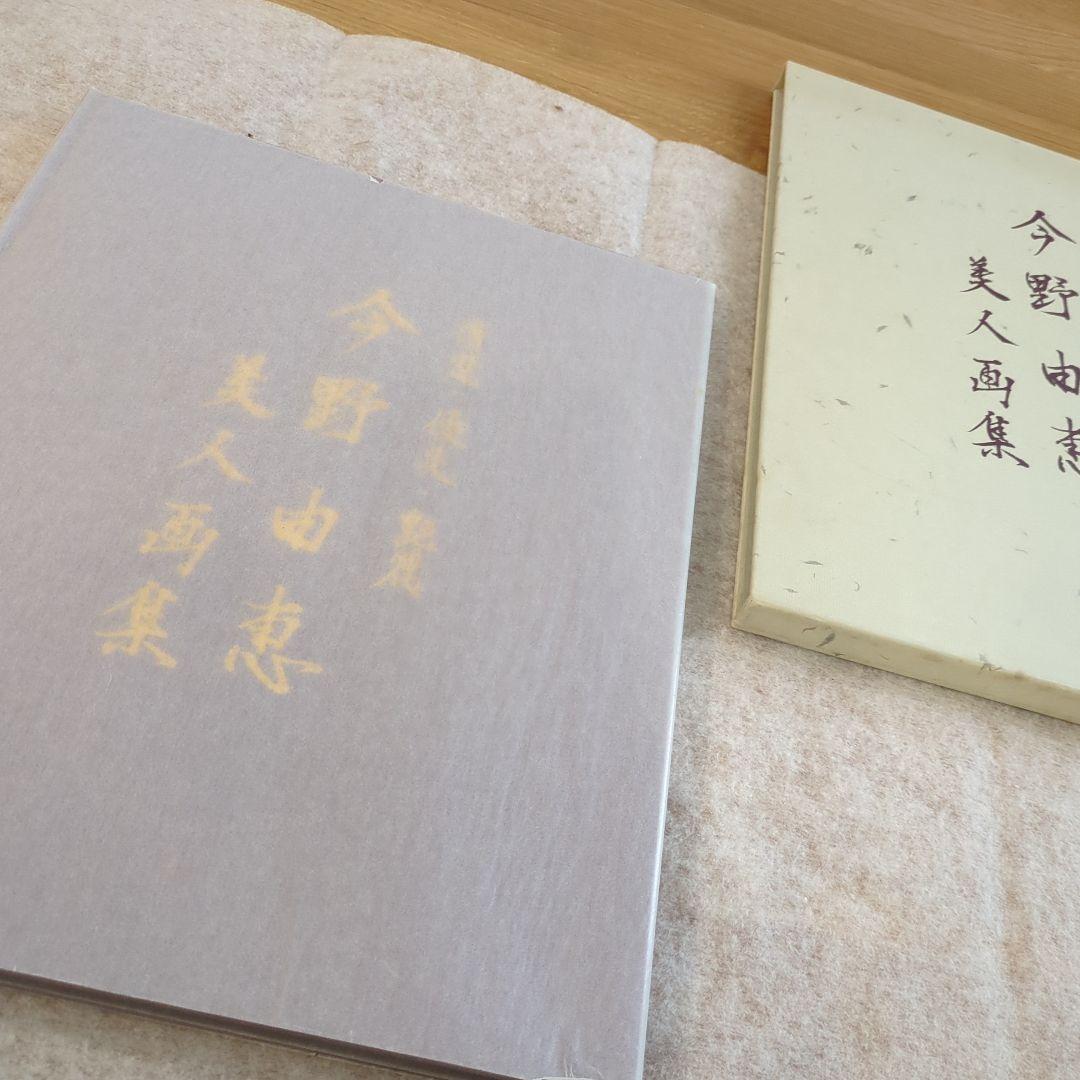 今野由恵
美人画集
今野由恵
美人画集